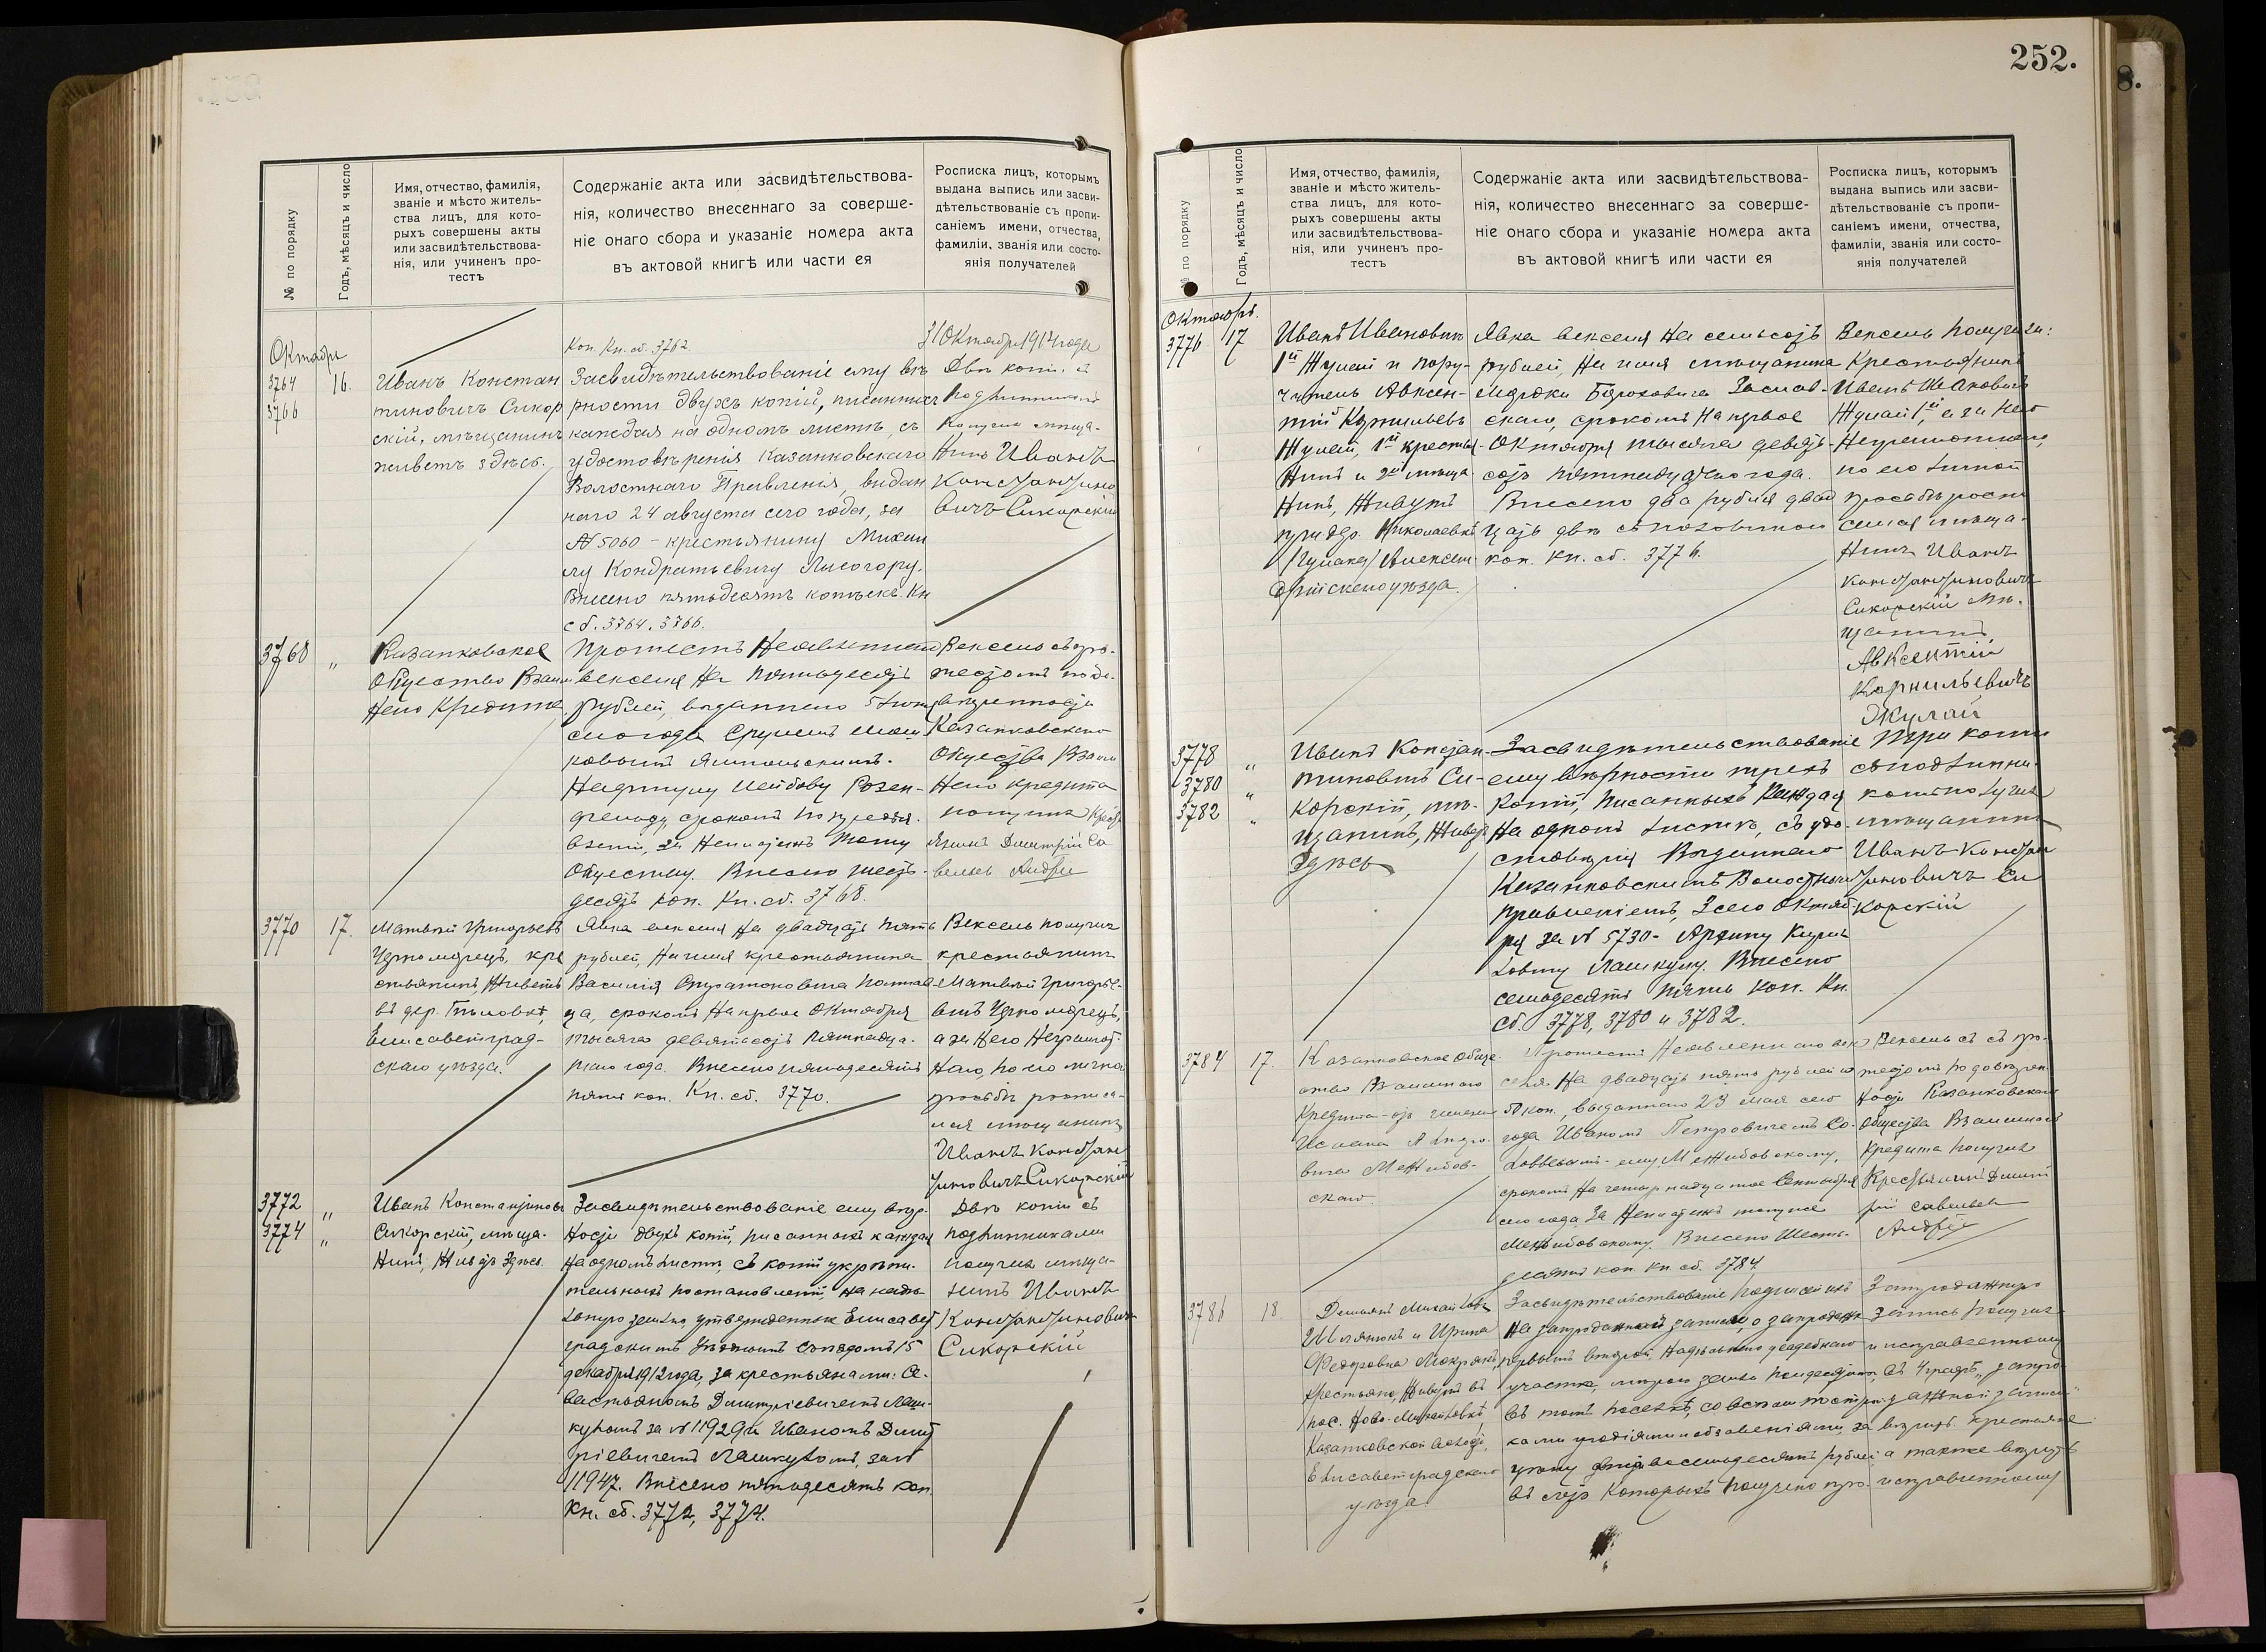 252.
8.
№ по порядку
Годъ, мѣсяцъ и число
Имя, отчество, фамилія,
званіе и мѣсто житель-
ства лицъ, для кото-
рыхъ совершены акты
или засвидѣтельствова-
нія, или учиненъ про-
тестъ
Содержаніе акта или засвидѣтельствова-
нія, количество внесеннаго за соверше-
ніе онаго сбора и указаніе номера акта
въ актовой книгѣ или части ея
Росписка лицъ, которымъ
выдана выпись или засви-
дѣтельствованіе съ пропи-
саніемъ имени, отчества,
фамиліи, званія или состо-
янія получателей
Октябрь
3764
3766
16.
Иванъ Констан
тиновичъ Сикор
скій, мѣщанинъ
живетъ здѣсь.
Коп. Кн. сб. 3762
Засвидѣтельствованіе ему вѣ
рности двухъ копій, писанныхъ
каждая на одномъ листѣ, съ
удостовѣренія Казанковскаго
Волостнаго Правленія, выдан
наго 24 августа сего года, за
№ 5060 - крестьянину Михаи
лу Кондратьевичу Лысогору.
Внесено пятьдесятъ копѣекъ. Кн
сб. 3764. 3766.
31 Октября 1914 года
Двѣ копіи съ
подлинникомъ
получилъ мѣща-
нинъ Иванъ
Константино
вичъ Сикорскій
3768
"
Казанковское
Общество Взаим
наго Кредита
Протестъ Неявленнаго
векселя на пятьдесятъ
рублей, выданнаго 5
сего года
Розен-
Обществу. Внесено шесть-
десятъ коп. Кн. сб. 3768.
Вексель съ про-
тестомъ по до-
вѣренности
Казанковскаго
Общества Взаим
наго кредита
получилъ Крест
янинъ Дмитрій Са
вельев Андрі
3770
17.
Матвѣй Григорьевъ
Черноморецъ, кре
стьянинъ, Живетъ
въ дер.
Елисаветград-
скаго уѣзда.
Явка векселя на двадцать пять
рублей, на имя крестьянина
Василія
ца, срокомъ на первое Октября
тысяча девятьсотъ пятнадца-
таго года. Внесено пятьдесятъ
пять коп. Кн. сб. 3770.
Вексель получилъ
крестьянинъ
Матвѣй Григорье-
вичъ Черноморецъ,
а за него Неграмот-
наго, по его личной
просьбѣ росписа-
лся мѣщанинъ
Иванъ Констан
тиновичъ Сикорскій
3772
3774
"
"
Иванъ Константинов
Сикорскій, мѣща-
нинъ, Живетъ Здѣсь.
Засвидѣтельствованіе ему вѣр-
ности двухъ копій, писанныхъ каждая
на одномъ листѣ, съ копій укрѣпи-
тельныхъ постановленій, на надѣ-
льную землю, утвержденныхъ Елисавет
градскимъ Уѣзднымъ Съѣздомъ 15
декабря 1912 года, за крестьянами: Се-
вастьяномъ Дмитріевичемъ Лаш-
куломъ за № 11929 и Иваномъ Дмит
ріевичемъ Лашкуломъ, за №
11947. Внесено пятьдесятъ коп.
Кн. сб. 3772, 3774.
Двѣ копіи съ
подлинниками
получилъ мѣща-
нинъ Иванъ
Константинович
Сикорскій
№ по порядку
Годъ, мѣсяцъ и число
Имя, отчество, фамилія,
званіе и мѣсто житель-
ства лицъ, для кото-
рыхъ совершены акты
или засвидѣтельствова-
нія, или учиненъ про-
тестъ
Содержаніе акта или засвидѣтельствова-
нія, количество внесеннаго за соверше-
ніе онаго сбора и указаніе номера акта
въ актовой книгѣ или части ея
Росписка лицъ, которымъ
выдана выпись или засви-
дѣтельствованіе съ пропи-
саніемъ имени, отчества,
фамиліи, званія или состо-
янія получателей
Октябрь.
3776
17
Иванъ Ивановичъ
1й Жулай и пору-
читель Авксен-
тій Корнильевъ
Жулай, 1й крестья-
нинъ и 2й мѣща-
нинъ, Живутъ
при дер. Николаевкѣ
Алексан-
дрійскаго уѣзда.
Явка векселя на семьсотъ
рублей, на имя мѣщанина
Заслав-
скаго, срокомъ на первое
Октября тысяча девять-
сотъ пятнадцатаго года.
Внесено два рубля двад
цать двѣ съ половиной
коп. кн. сб. 3776.
Вексель получили:
Крестьянинъ
Иванъ Ивановичъ
Жулай 1й, а за него
Неграмотнаго,
по его личной
просьбѣ роспи
сался мѣща-
нинъ Иванъ
Константиновичъ
Сикорскій Мѣ-
щанинъ
Авксентій
Корнильевичъ
Жулай
3778
3780
3782
"
"
"
Иванъ Констан-
тиновичъ Си-
корскій, мѣ-
щанинъ, Живетъ
Здѣсь
Засвидѣтельствованіе
ему вѣрности трехъ
копій, писанныхъ каждая
на одномъ листѣ, съ удо-
стовѣренія Выданнаго
Казанковскимъ Волостнымъ
правленіемъ, 3 сего Октяб-
ря за № 5730 -
Лашкулу. Внесено
семьдесятъ пять коп. Кн.
сб. 3778, 3780 и 3782.
Три копіи
съ подлинни-
комъ получилъ
мѣщанинъ
Иванъ Констан
тиновичъ Си
корскій
3784
17.
Казанковское Обще-
ство Взаимнаго
Кредита - отъ имени
Межибов-
скаго
Протестъ Неявленнаго век
селя на двадцать пять рублей
50 коп., выданнаго 23 мая сего
года Иваномъ Петровичемъ Со-
ловьевымъ - ему Межибовскому,
срокомъ на четырнадцатое Сентября
сего года, за
Межибовскому. Внесено Шесть-
десятъ коп. кн. сб. 3784.
Вексель съ про-
тестомъ по довѣрен-
ности Казанковскаго
Общества Взаимнаго
Кредита получилъ
Крестьянинъ Дмит
рій Савельев
Андрій
3786
18
Демьянъ Михайловъ
и Ирина
Федоровна
крестьяне, Живутъ въ
пос. Ново-Михайловкѣ,
Казанковской волости,
Елисаветградскаго
уѣзда
Засвидѣтельствованіе подписей ихъ
на запродажной записи, о запродажѣ
первымъ второй надѣльнаго усадебнаго
участка,
въ томъ поселкѣ, со всѣми постройками
рублей
въ счетъ которыхъ получено
Запродажную
запись получилъ
и исправленному
крестьяне
а также
исправленному